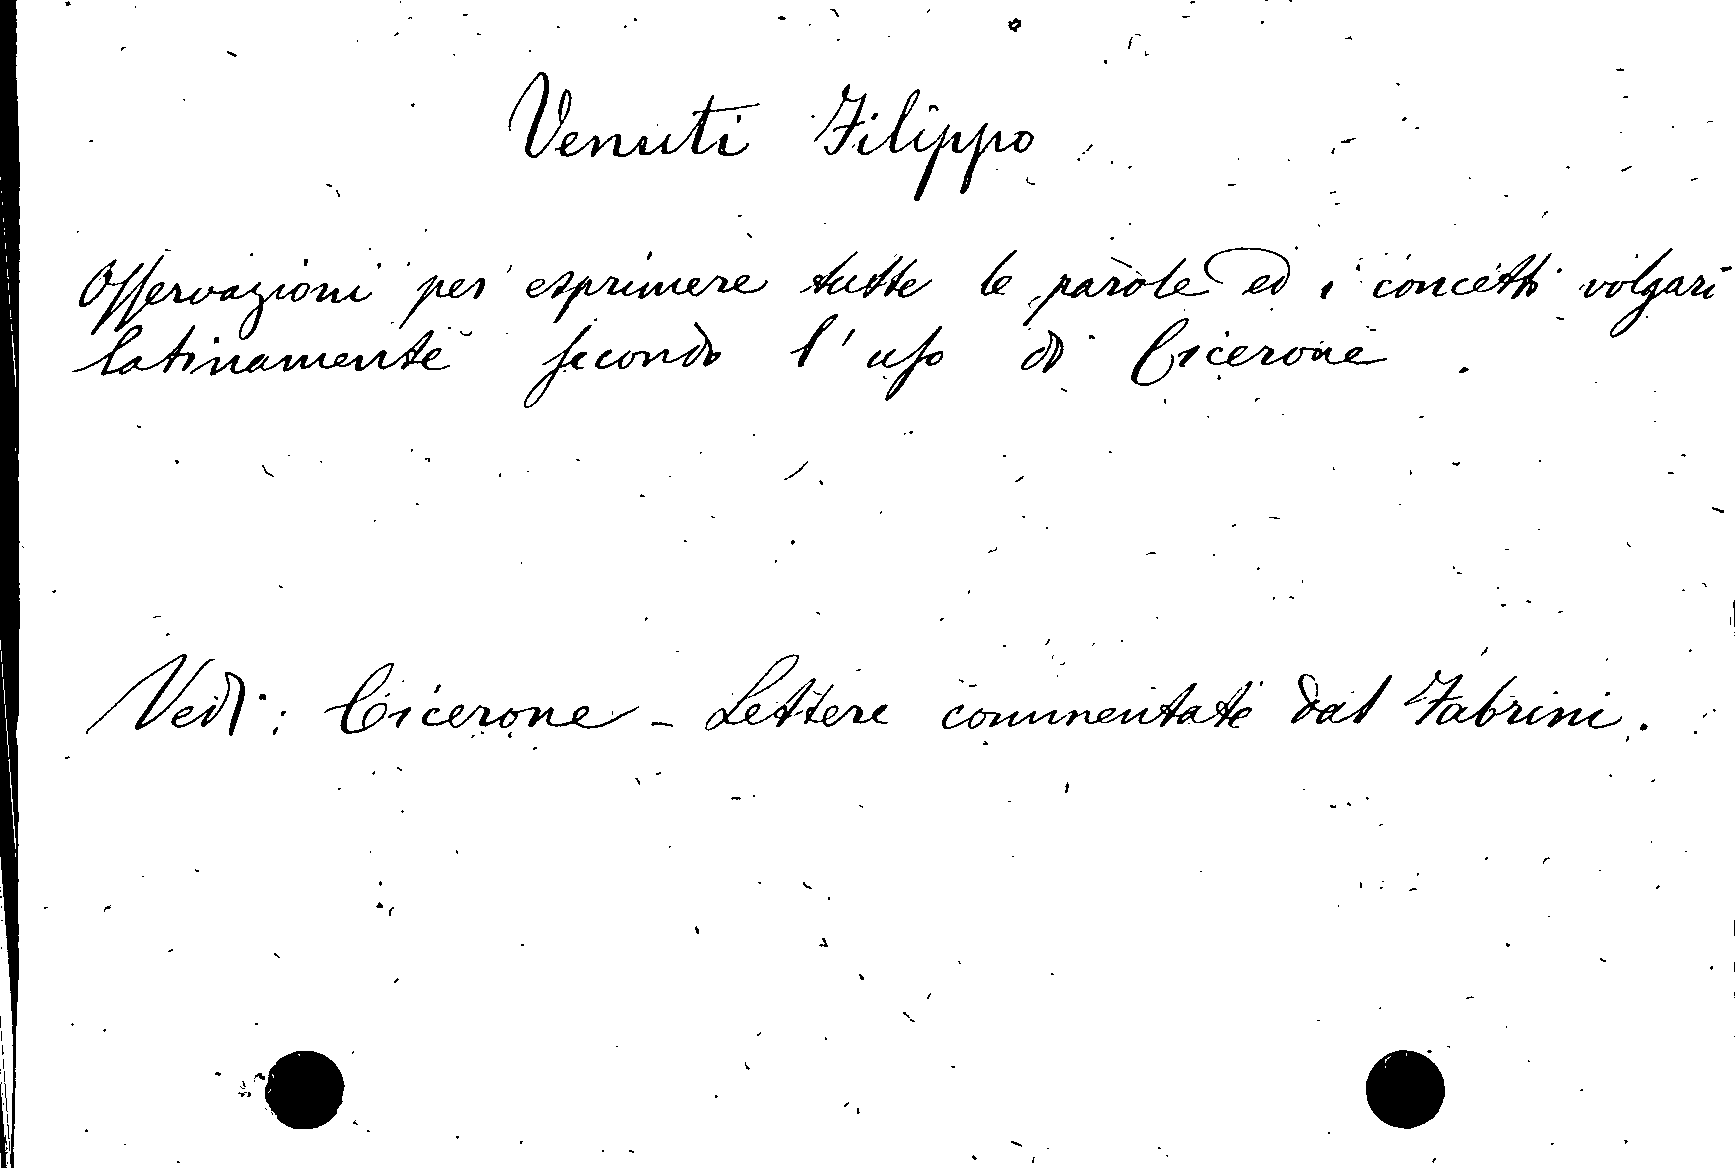 Venuti Filippo
Osservazioni per esprimere tutte le parole ed i concetti volgari
latinamente secondo l'uso di Cicerone.
Vedi: Cicerone - Lettere commentate dal Fabrini.